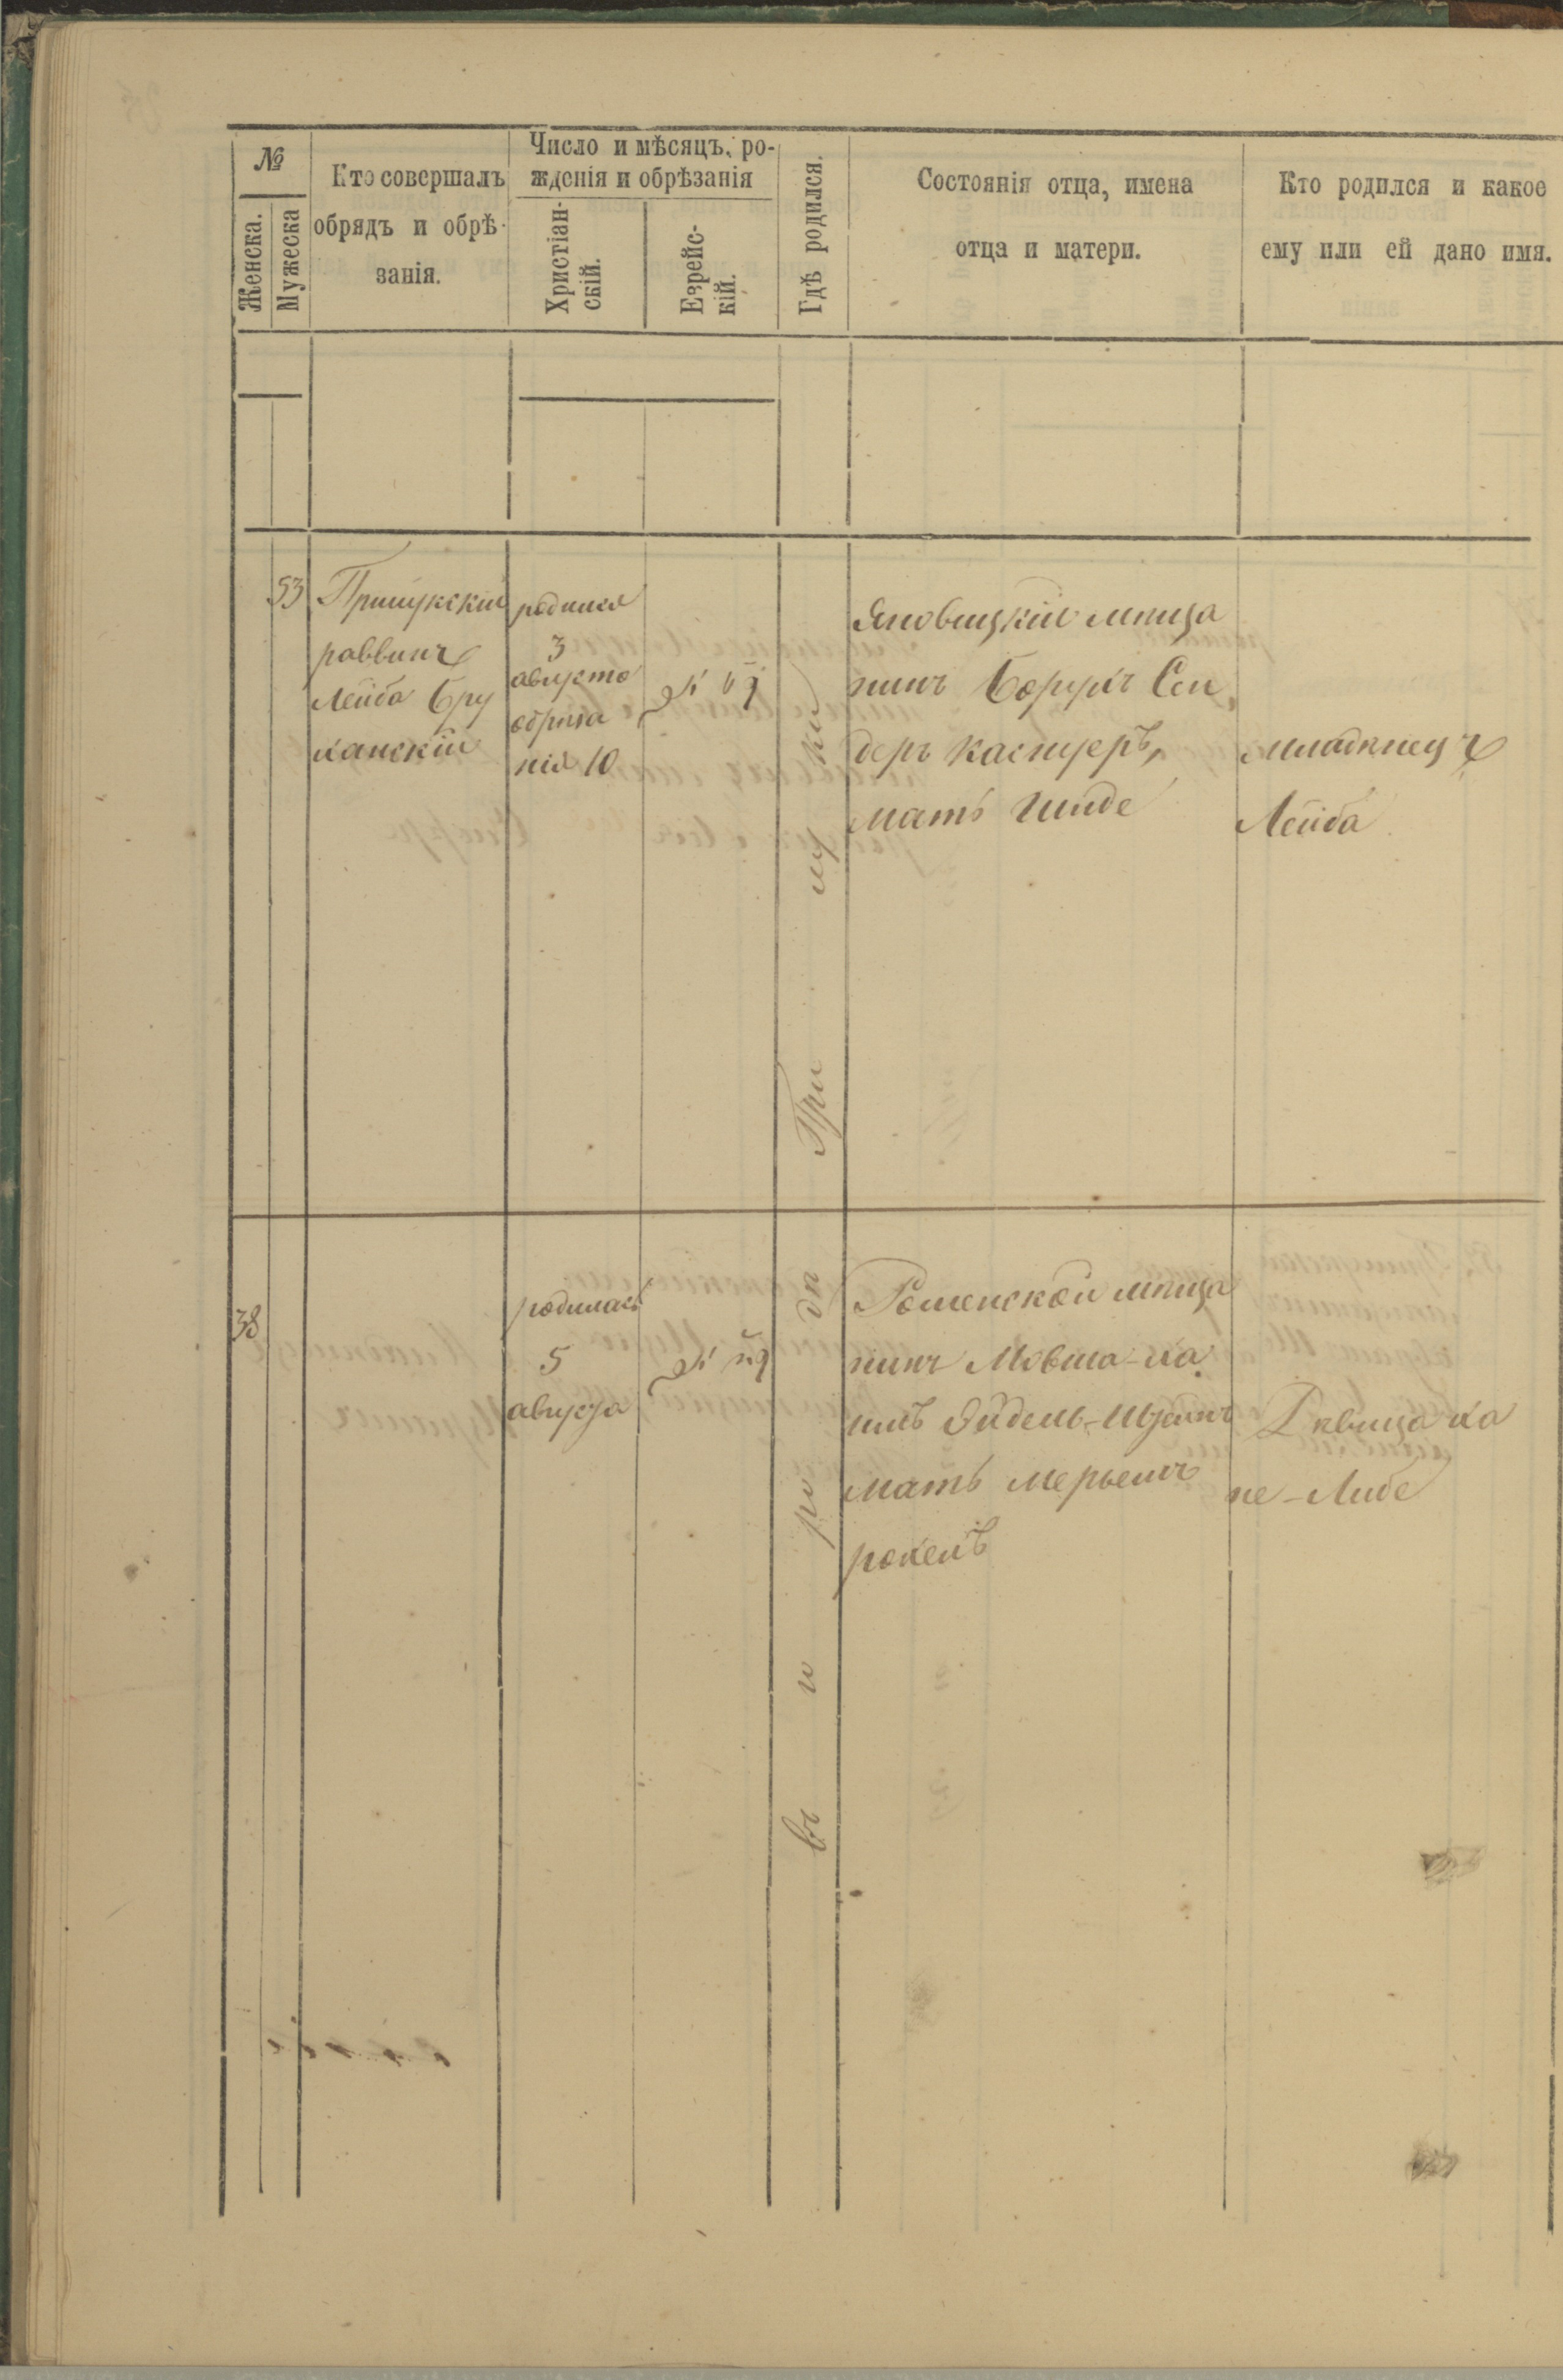 №
Женска.
Мужеска
Кто совершалъ
обрядъ и обрѣ-
занія.
Число и мѣсяцъ, ро-
жденія и обрѣзанія
Христіан-
скій.
Езрейс-
кій.
Гдѣ родился.
Состоянія отца, имена
отца и матери.
Кто родился и какое
ему или ей дано имя.
53
Прилукскій
раввинъ
Лейба Бру
ханскій
родился
3
августа
обрѣза
нія 10
Яновицкій мѣща
нинъ Борухъ Сен
деръ Кастеръ,
мать Гинде
младенецъ
Лейба
въ городѣ Прилуки
38
родилась
5
августа
Роменской мѣща
нинъ Мовша-Ха
имъ Эйдель-
мать Мерьемъ
рохель
Дѣвица Ха
не-Либе